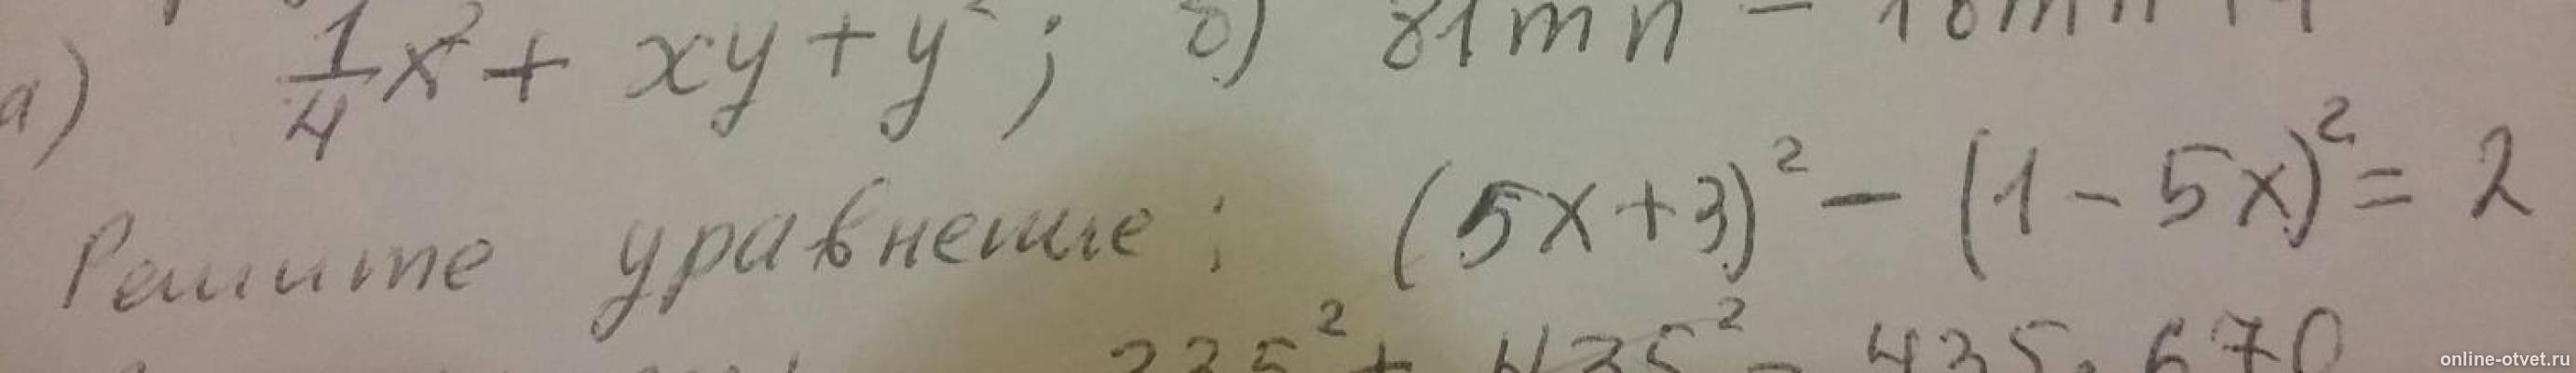 а) 1/4 x² + xy + y² ; б) 81mn −
Решите уравнение : (5x+3)² − (1 − 5x)² = 2
335² + 435² − 435 · 670
online-otvet.ru